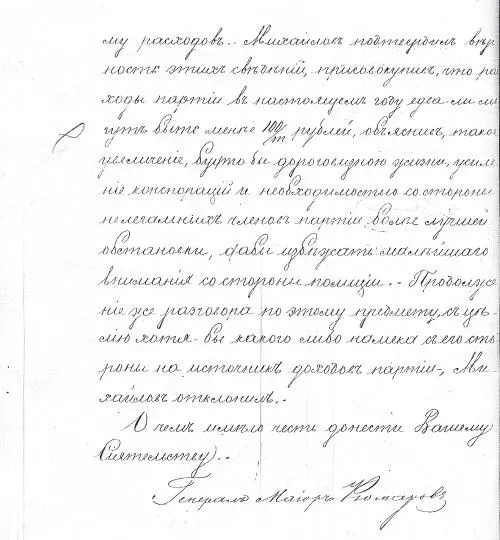 му расходовъ. - Михайловъ подтвердилъ вѣр
ность этихъ свѣдѣній, присовокупивъ, что рас
ходы партіи въ настоящемъ году едва-ли мо
гутъ быть менѣе 100/т рублей, объяснивъ, такое
увеличеніе, будто бы дороговизною жизни, усиле
ніе конспирацій и необходимостью со стороны
нелегальныхъ членовъ партіи болѣе лучшей
обстановки, дабы избѣжать малѣйшаго
вниманія со стороны полиціи. - Продолже
ніе же разговора по этому предмету, съ цѣ
лію хотя-бы какого либо намека съ его сто
роны на источникъ доходовъ партіи, Ми
хайловъ отклонилъ. -
О чемъ имѣю честь донести Вашему
Сіятельству. -
Генералъ Маіоръ Комаровъ